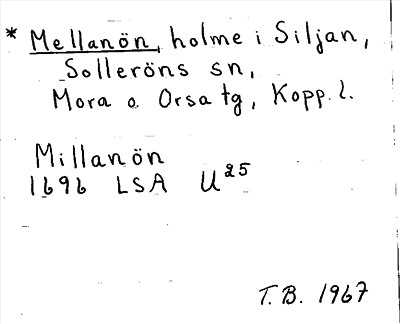 * Mellanön, holme i Siljan,
Solleröns sn,
Mora o. Orsa tg, Kopp. l.
Millanön
1696 LSA U25
T.B. 1967